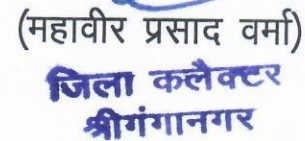 (महावीर प्रसाद वर्मा)
जिला कलैक्टर
श्रीगंगानगर